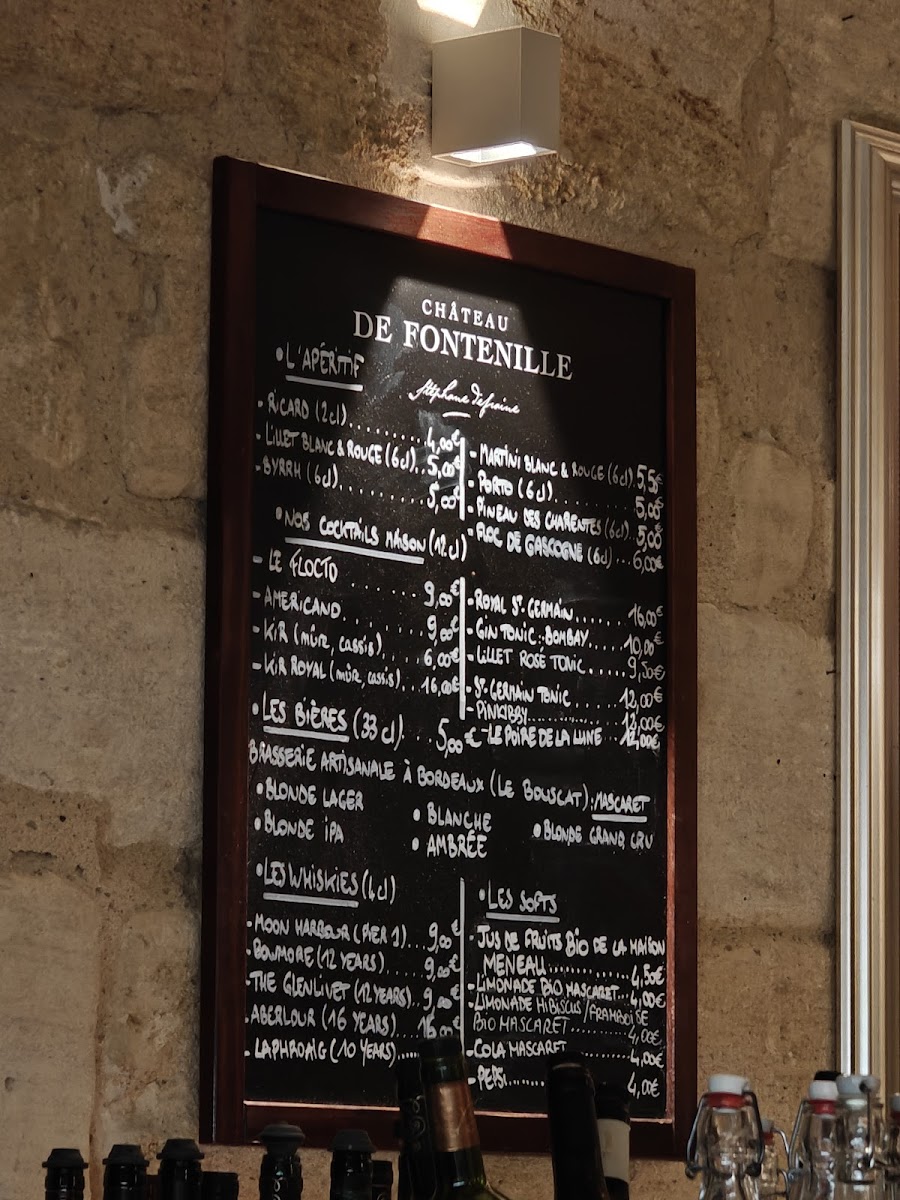 CHÂTEAU
DE FONTENILLE
Stéphane Defraine
• L'APÉRITIF
- RICARD (2cl) .......... 4,00€
- LILLET BLANC & ROUGE (6cl).. 5,00€
- BYRRH (6cl) .......... 5,00€
- MARTINI BLANC & ROUGE (6cl). 5,5€
- PORTO (6cl) .......... 5,00€
- PINEAU DES CHARENTES (6cl). 5,00€
- FLOC DE GASCOGNE (6cl) ... 6,00€
• NOS COCKTAILS MAISON (12cl)
- LE FLOCTO ........ 9,00€
- AMERICANO ........ 9,00€
- KIR (mûre, cassis) ..... 6,00€
- KIR ROYAL (mûre, cassis)... 16,00€
- ROYAL ST-GERMAIN ...... 16,00€
- GIN TONIC : BOMBAY ..... 10,00€
- LILLET ROSÉ TONIC ...... 9,50€
- ST-GERMAIN TONIC ..... 12,00€
- PINKIBBY .......... 12,00€
- LE POIRE DE LA LUNE ... 12,00€
• LES BIÈRES (33 cl) . . . . 5,00€
BRASSERIE ARTISANALE À BORDEAUX (LE BOUSCAT) : MASCARET
• BLONDE LAGER
• BLONDE IPA
• BLANCHE
• AMBRÉE
• BLONDE GRAND CRU
• LES WHISKIES (4cl)
- MOON HARBOUR (PIER 1) .... 9,00€
- BOWMORE (12 YEARS) ...... 9,00€
- THE GLENLIVET (12 YEARS) .. 9,00€
- ABERLOUR (16 YEARS) ... 16,00€
- LAPHROAIG (10 YEARS) .....
• LES SOFTS
- JUS DE FRUITS BIO DE LA MAISON
MENEAU ............ 4,50€
- LIMONADE BIO MASCARET ... 4,00€
- LIMONADE HIBISCUS / FRAMBOISE
BIO MASCARET ......... 4,00€
- COLA MASCARET ......... 4,00€
- PEPSI ............ 4,00€